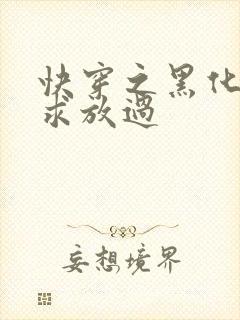 快穿之黑化
求放過
妄想境界